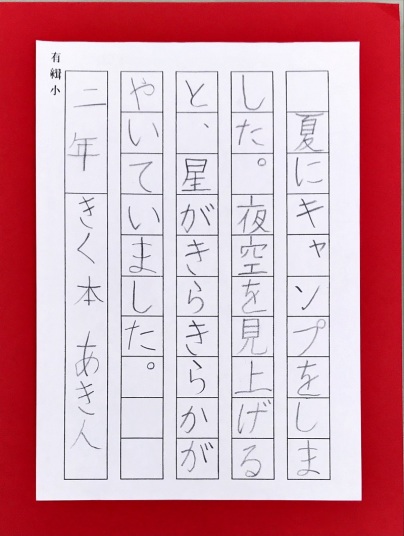 有緝小
夏にキャンプをしま
した。夜空を見上げる
と、星がきらきらかが
やいていました。
二年 きく本 あきん